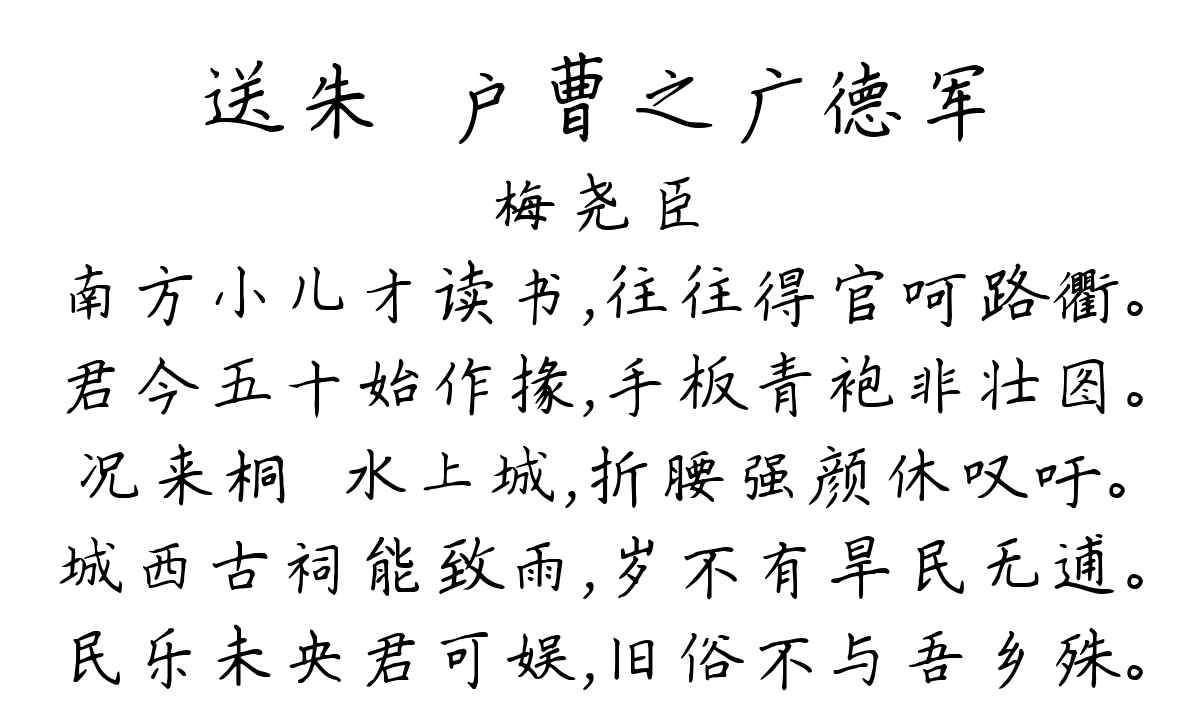 送朱 户曹之广德军
梅尧臣
南方小儿才读书,往往得官呵路衢。
君今五十始作掾,手板青袍非壮图。
况来桐 水上城,折腰强颜休叹吁。
城西古祠能致雨,岁不有旱民无逋。
民乐未央君可娱,旧俗不与吾乡殊。